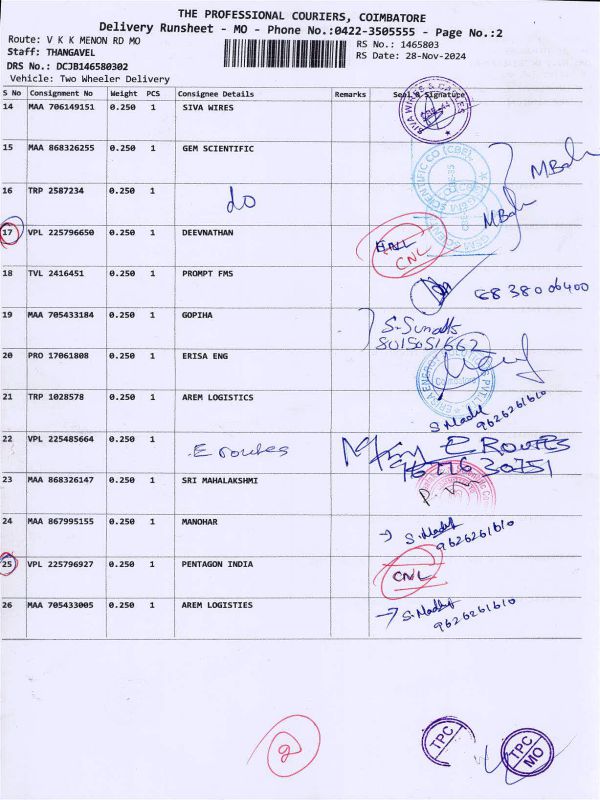 THE PROFESSIONAL COURIERS, COIMBATORE
Delivery Runsheet - MO - Phone No.:0422-3505555 - Page No.:2
Route: V K K MENON RD MO
RS No.: 1465803
Staff: THANGAVEL
RS Date: 28-Nov-2024
DRS No.: DCJB146580302
Vehicle: Two Wheeler Delivery
S No Consignment No Weight PCS Consignee Details Remarks Seal & Signature
14 MAA 706149151 0.250 1 SIVA WIRES
SIVA WIRES & CABLES
15 MAA 868326255 0.250 1 GEM SCIENTIFIC
GEM SCIENTIFIC CO (CBE)
16 TRP 2587234 0.250 1 do
17 VPL 225796650 0.250 1 DEEVNATHAN CNL
18 TVL 2416451 0.250 1 PROMPT FMS
19 MAA 705433184 0.250 1 GOPIHA
8015051662
20 PRO 17061808 0.250 1 ERISA ENG
21 TRP 1028578 0.250 1 AREM LOGISTICS
9626261610
22 VPL 225485664 0.250 1 E routes E ROUTES
30751
23 MAA 868326147 0.250 1 SRI MAHALAKSHMI
24 MAA 867995155 0.250 1 MANOHAR
9626261610
25 VPL 225796927 0.250 1 PENTAGON INDIA CNL
26 MAA 705433005 0.250 1 AREM LOGISTIES
9626261610
2
TPC
TPC
MO